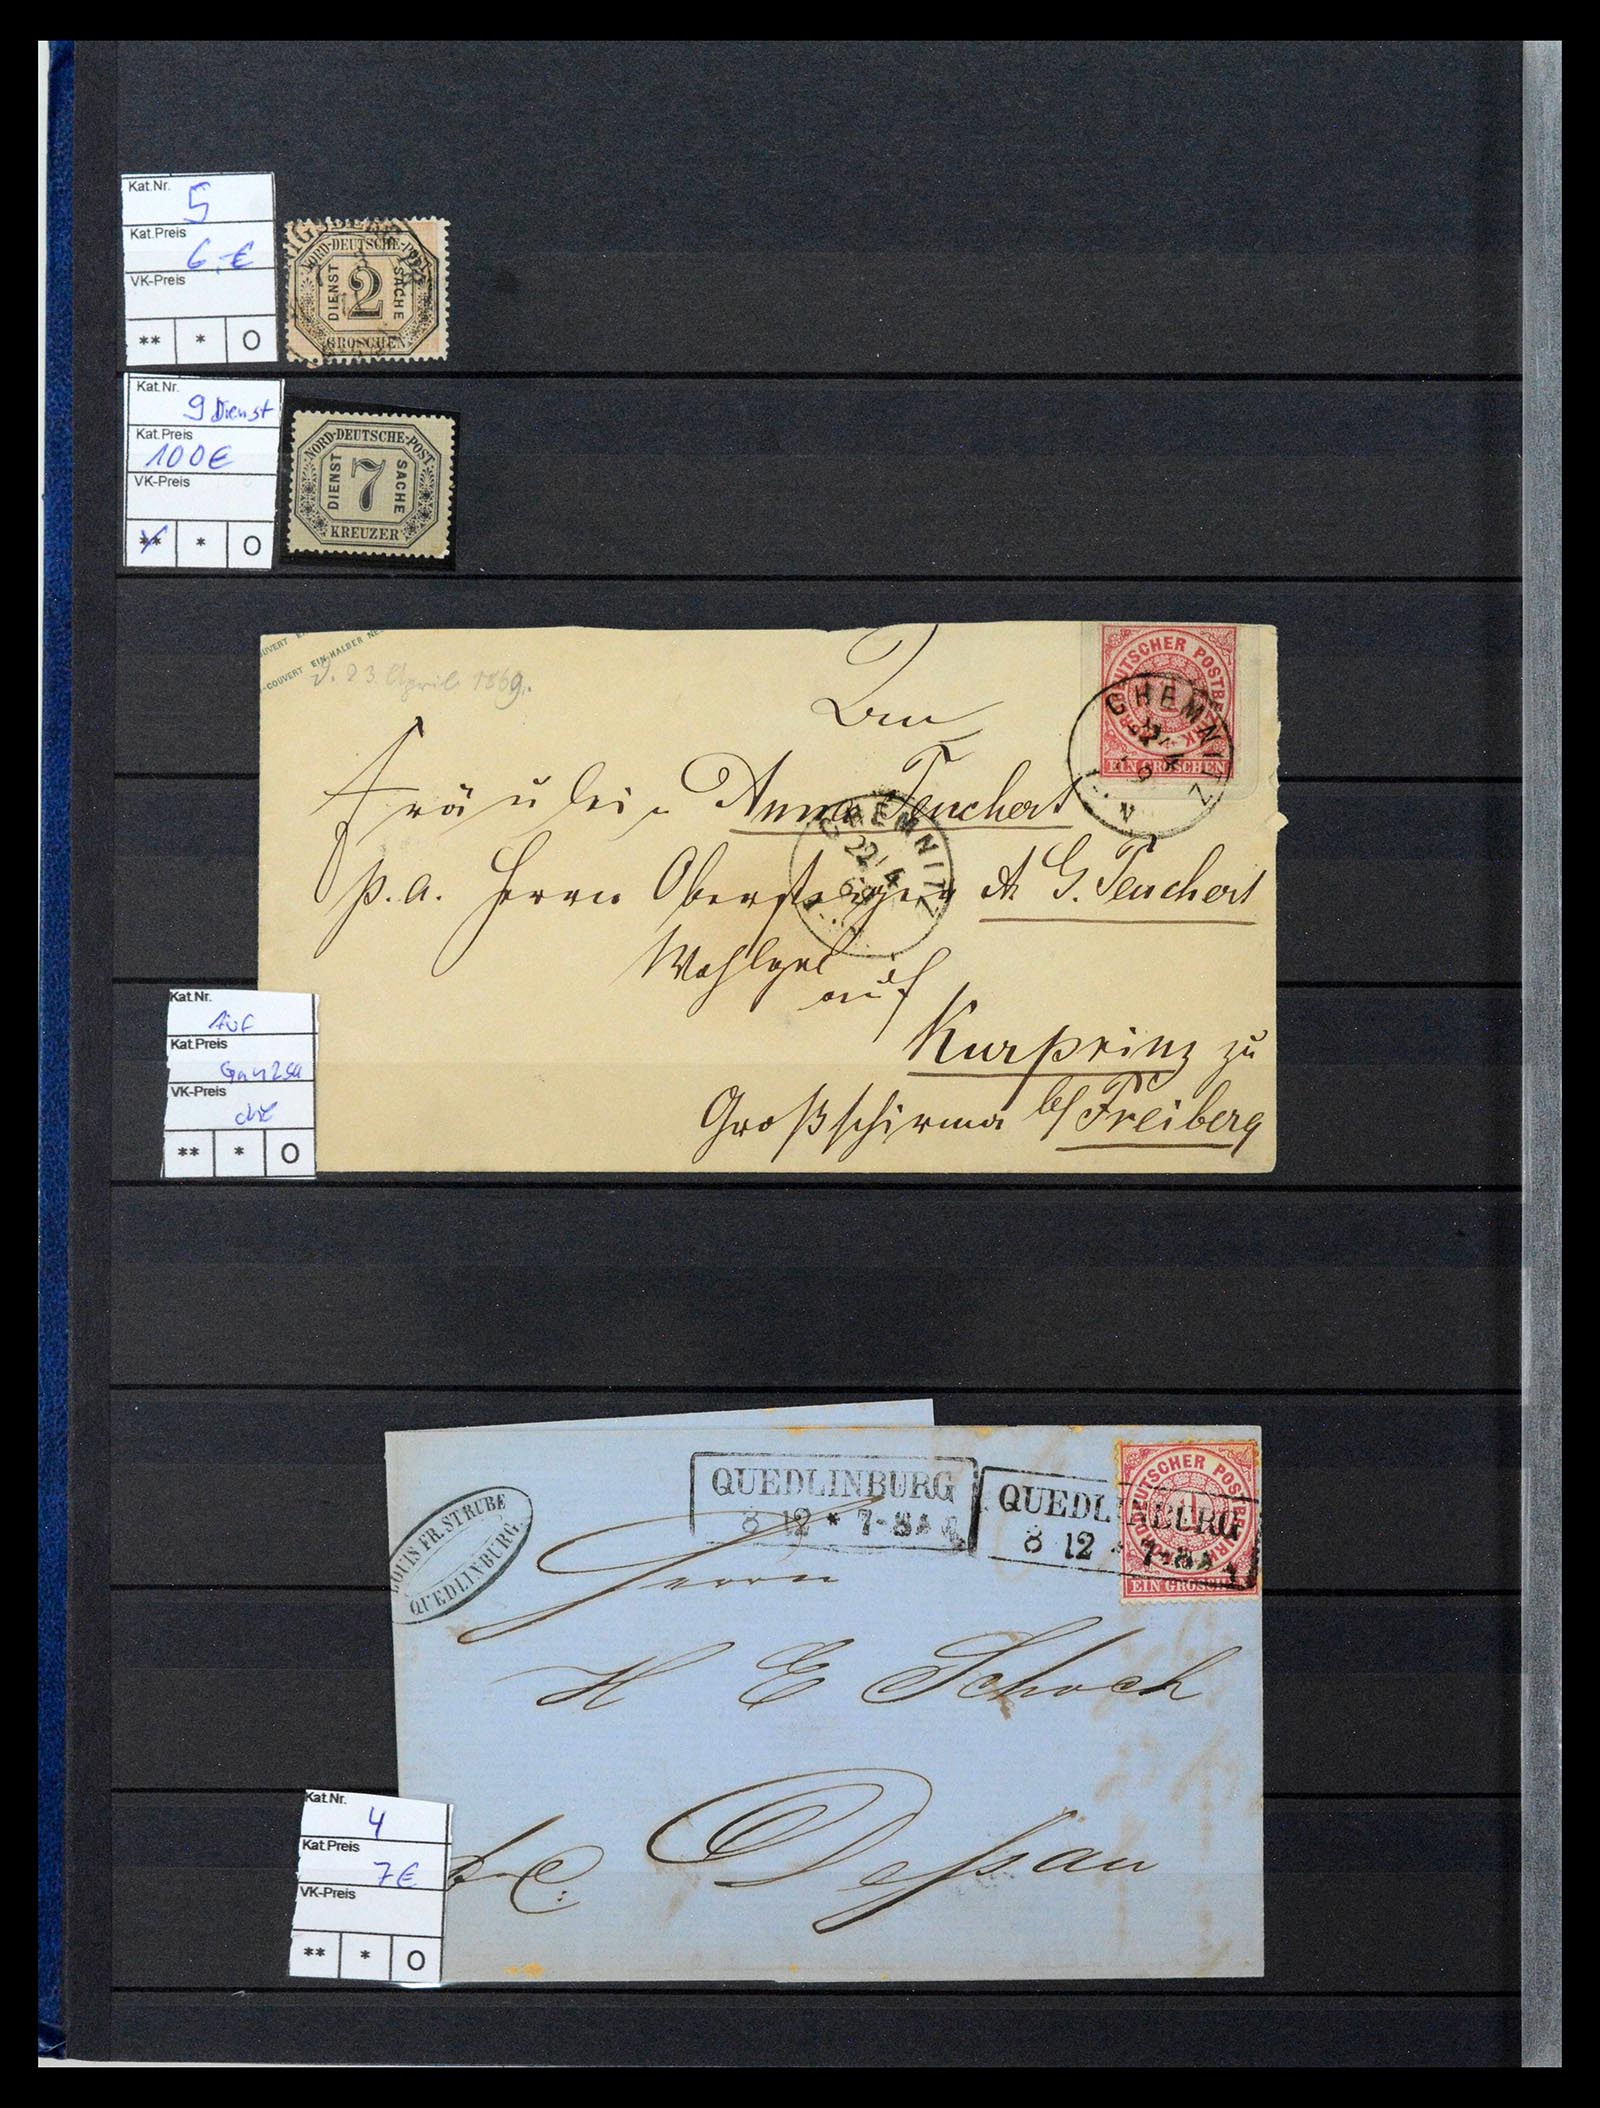 Kat.Nr.
5
Kat.Preis
6,-€
VK-Preis
** * O
NORD-DEUTSCHE-POST
DIENST 2 SACHE
GROSCHEN
Kat.Nr.
9 Dienst
Kat.Preis
100€
VK-Preis
** * O
NORD-DEUTSCHE-POST
DIENST 7 SACHE
KREUZER
-COUVERT EIN HALBER
d. 23. April 1869.
NORDDEUTSCHER POSTBEZIRK
EIN GROSCHEN
CHEMNITZ
An
Fräulein Anna Teuchert
CHEMNITZ
22 4
69
p. a. Herrn Obersteiger A. G. Teuchert
Wohlgeb
auf
Kurprinz zu
Großschirma b/ Freiberg
Kat.Nr.
Auf
Kat.Preis
Ganzsa
VK-Preis
che
** * O
LOUIS FR. STRUBE
QUEDLINBURG
QUEDLINBURG
8 12 * 7-8
QUEDLINBURG
8 12 * 7-8
NORDDEUTSCHER POSTBEZIRK
EIN GROSCHEN
Herrn
H E Schoch
Dessau
Kat.Nr.
4
Kat.Preis
7€
VK-Preis
** * O